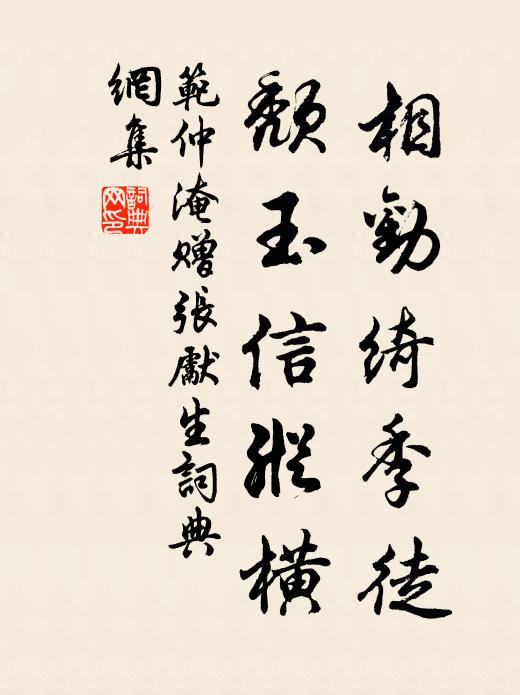 相勸綺季徒
頹玉信縱橫
範仲淹贈張獻生詞典
網集
詞典網印